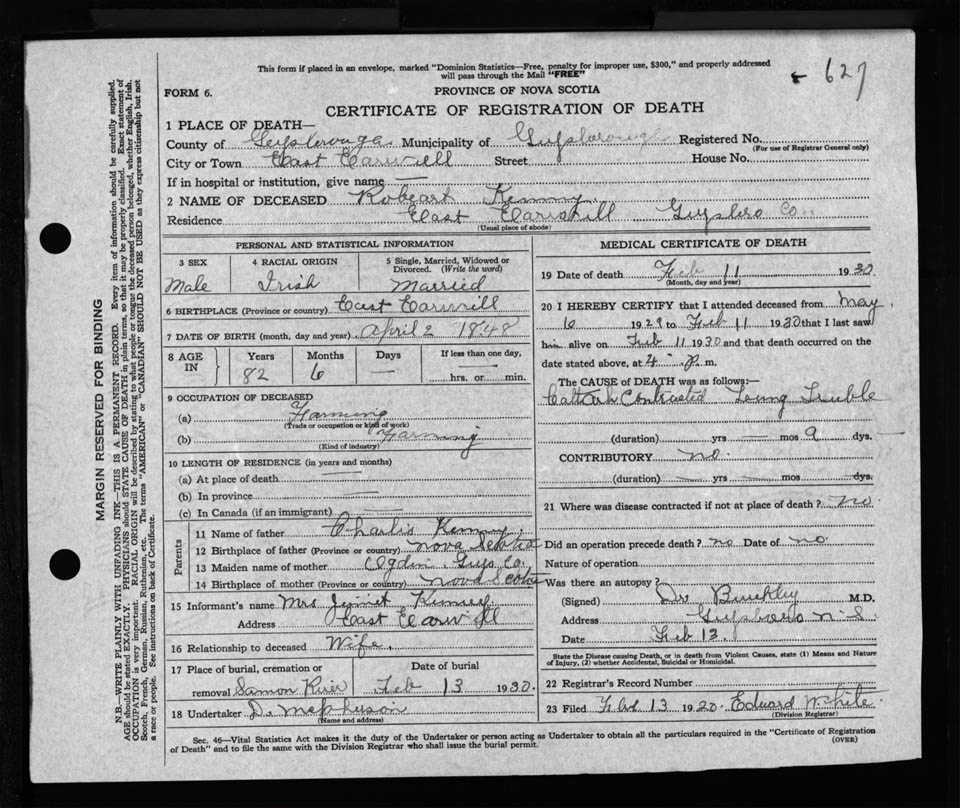 This form if placed in an envelope, marked "Dominion Statistics—Free, penalty for improper use, $300," and properly addressed
will pass through the Mail "FREE"
627
FORM 6.
PROVINCE OF NOVA SCOTIA
CERTIFICATE OF REGISTRATION OF DEATH
1 PLACE OF DEATH—
County of Municipality of Guysborough Registered No.
(For use of Registrar General only)
City or Town East Street House No.
If in hospital or institution, give name —
2 NAME OF DECEASED Robeart Kenny
Residence East Guysboro Co.
(Usual place of abode)
PERSONAL AND STATISTICAL INFORMATION
3 SEX 4 RACIAL ORIGIN 5 Single, Married, Widowed or Divorced. (Write the word)
Male Irish Married
6 BIRTHPLACE (Province or country) East
7 DATE OF BIRTH (month, day and year) April 2 1848
8 AGE IN Years Months Days If less than one day,
82 6 — hrs. or min.
9 OCCUPATION OF DECEASED
(a) Farming
(Trade or occupation or kind of work)
(b) Farming
(Kind of industry)
10 LENGTH OF RESIDENCE (in years and months)
(a) At place of death —
(b) In province —
(c) In Canada (if an immigrant) —
Parents
11 Name of father Charlis Kenny
12 Birthplace of father (Province or country) Nova Scotia
13 Maiden name of mother Ogden Guys Co.
14 Birthplace of mother (Province or country) Nova Scotia
15 Informant's name Mrs
Address East
16 Relationship to deceased Wife
17 Place of burial, cremation or removal Samon River Date of burial Feb 13 1930
18 Undertaker D. Mcpherson
(Name and address)
MEDICAL CERTIFICATE OF DEATH
19 Date of death Feb 11 1930
(Month, day and year)
20 I HEREBY CERTIFY that I attended deceased from May
6 1929 to Feb 11 1930 that I last saw
him alive on Feb 11 1930 and that death occurred on the
date stated above, at 4 p. m.
The CAUSE of DEATH was as follows:—
Contracted Loung Truble
(duration) yrs — mos 9 dys. —
CONTRIBUTORY no
(duration) — yrs — mos — dys.
21 Where was disease contracted if not at place of death? no
Did an operation precede death? no Date of no
Nature of operation
Was there an autopsy?
(Signed) Dr Buckley M.D.
Address Guysboro N-S
Date Feb 13.
State the Disease causing Death, or in death from Violent Causes, state (1) Means and Nature
of Injury, (2) whether Accidental, Suicidal or Homicidal.
22 Registrar's Record Number
23 Filed Feb 13 1920 Edward White
(Division Registrar)
Sec. 46—Vital Statistics Act makes it the duty of the Undertaker or person acting as Undertaker to obtain all the particulars required in the "Certificate of Registration
of Death" and to file the same with the Division Registrar who shall issue the burial permit.
(OVER)
MARGIN RESERVED FOR BINDING
N.B.—WRITE PLAINLY WITH UNFADING INK—THIS IS A PERMANENT RECORD. Every item of information should be carefully supplied.
AGE should be stated EXACTLY. PHYSICIANS should STATE CAUSE OF DEATH in plain terms, so that it may be properly classified. Exact statement of
OCCUPATION is very important. RACIAL ORIGIN will be described by stating to what people or tongue the deceased person belonged, whether English, Irish,
Scotch, French, German, Russian, Ruthenian, etc. The terms "AMERICAN" or "CANADIAN" SHOULD NOT BE USED as they express citizenship but not
a race or people. See instructions on back of Certificate.